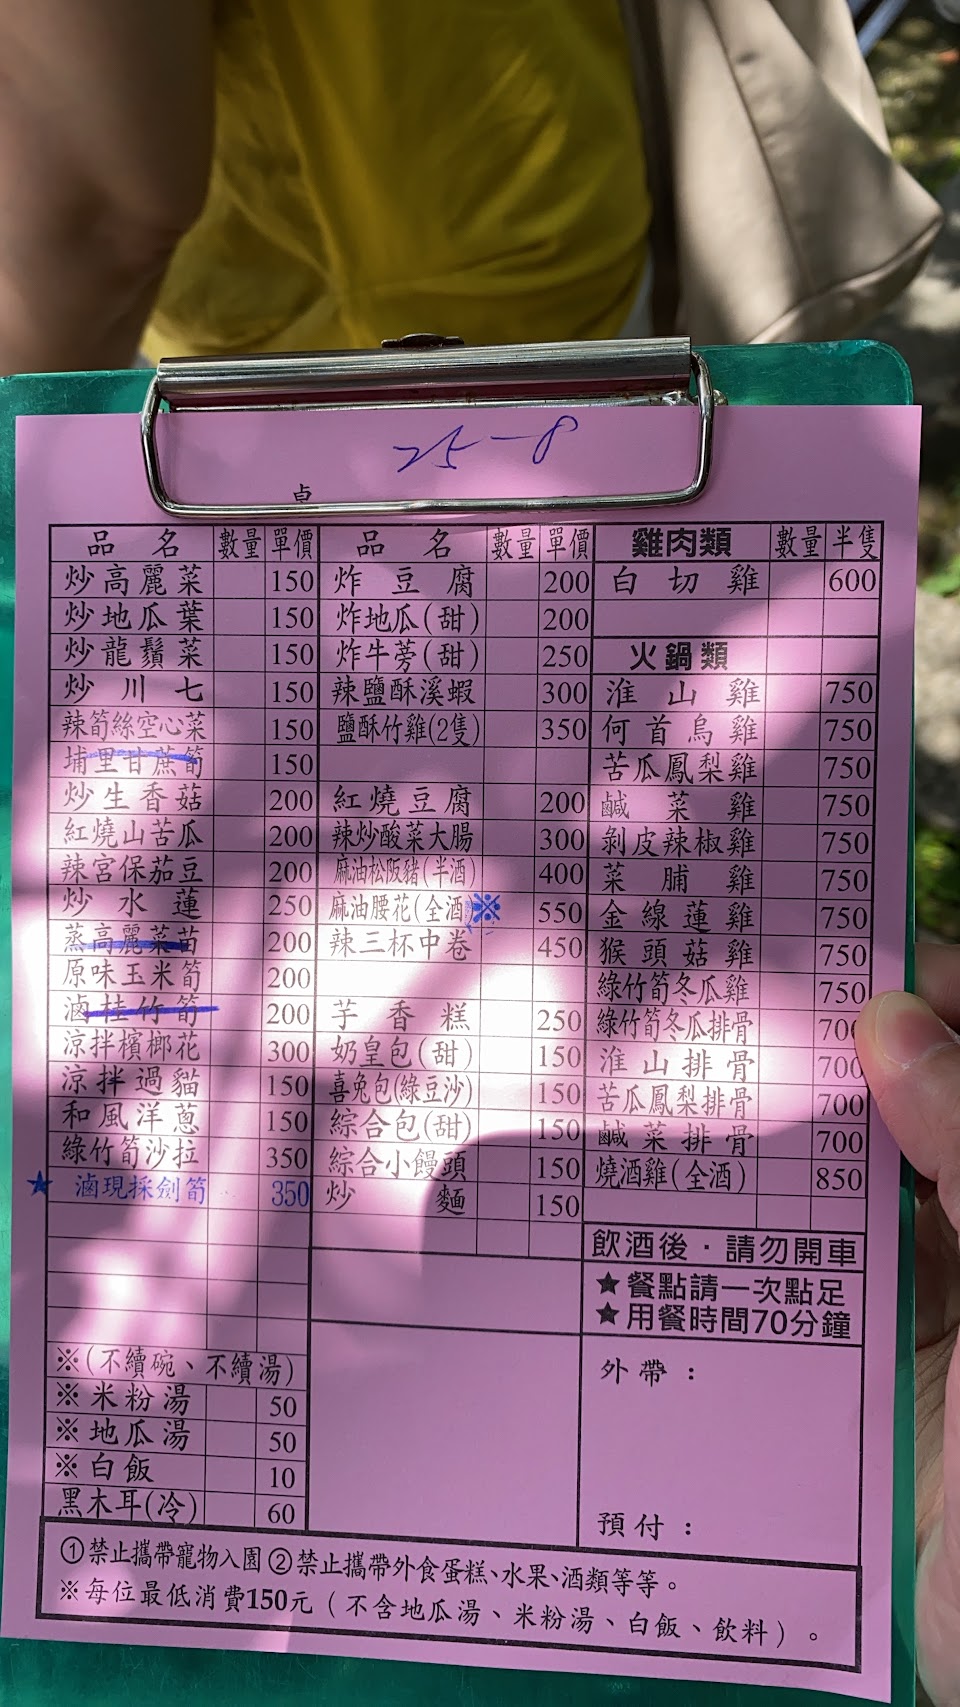 25-8
桌
品名 數量 單價
炒高麗菜 150
炒地瓜葉 150
炒龍鬚菜 150
炒川七 150
辣筍絲空心菜 150
埔里甘蔗筍 150
炒生香菇 200
紅燒山苦瓜 200
辣宮保茄豆 200
炒水蓮 250
蒸高麗菜苗 200
原味玉米筍 200
滷桂竹筍 200
涼拌檳榔花 300
涼拌過貓 150
和風洋蔥 150
綠竹筍沙拉 350
★ 滷現採劍筍 350
※(不續碗、不續湯)
※米粉湯 50
※地瓜湯 50
※白飯 10
黑木耳(冷) 60
品名 數量 單價
炸豆腐 200
炸地瓜(甜) 200
炸牛蒡(甜) 250
辣鹽酥溪蝦 300
鹽酥竹雞(2隻) 350
紅燒豆腐 200
辣炒酸菜大腸 300
麻油松阪豬(半酒) 400
麻油腰花(全酒 ※ 550
辣三杯中卷 450
芋香糕 250
奶皇包(甜) 150
喜兔包(綠豆沙) 150
綜合包(甜) 150
綜合小饅頭 150
炒麵 150
雞肉類 數量 半隻
白切雞 600
火鍋類
淮山雞 750
何首烏雞 750
苦瓜鳳梨雞 750
鹹菜雞 750
剝皮辣椒雞 750
菜脯雞 750
金線蓮雞 750
猴頭菇雞 750
綠竹筍冬瓜雞 750
綠竹筍冬瓜排骨 700
淮山排骨 700
苦瓜鳳梨排骨 700
鹹菜排骨 700
燒酒雞(全酒) 850
飲酒後·請勿開車
★餐點請一次點足
★用餐時間70分鐘
外帶：
預付：
①禁止攜帶寵物入園②禁止攜帶外食蛋糕、水果、酒類等等。
※每位最低消費150元（不含地瓜湯、米粉湯、白飯、飲料）。